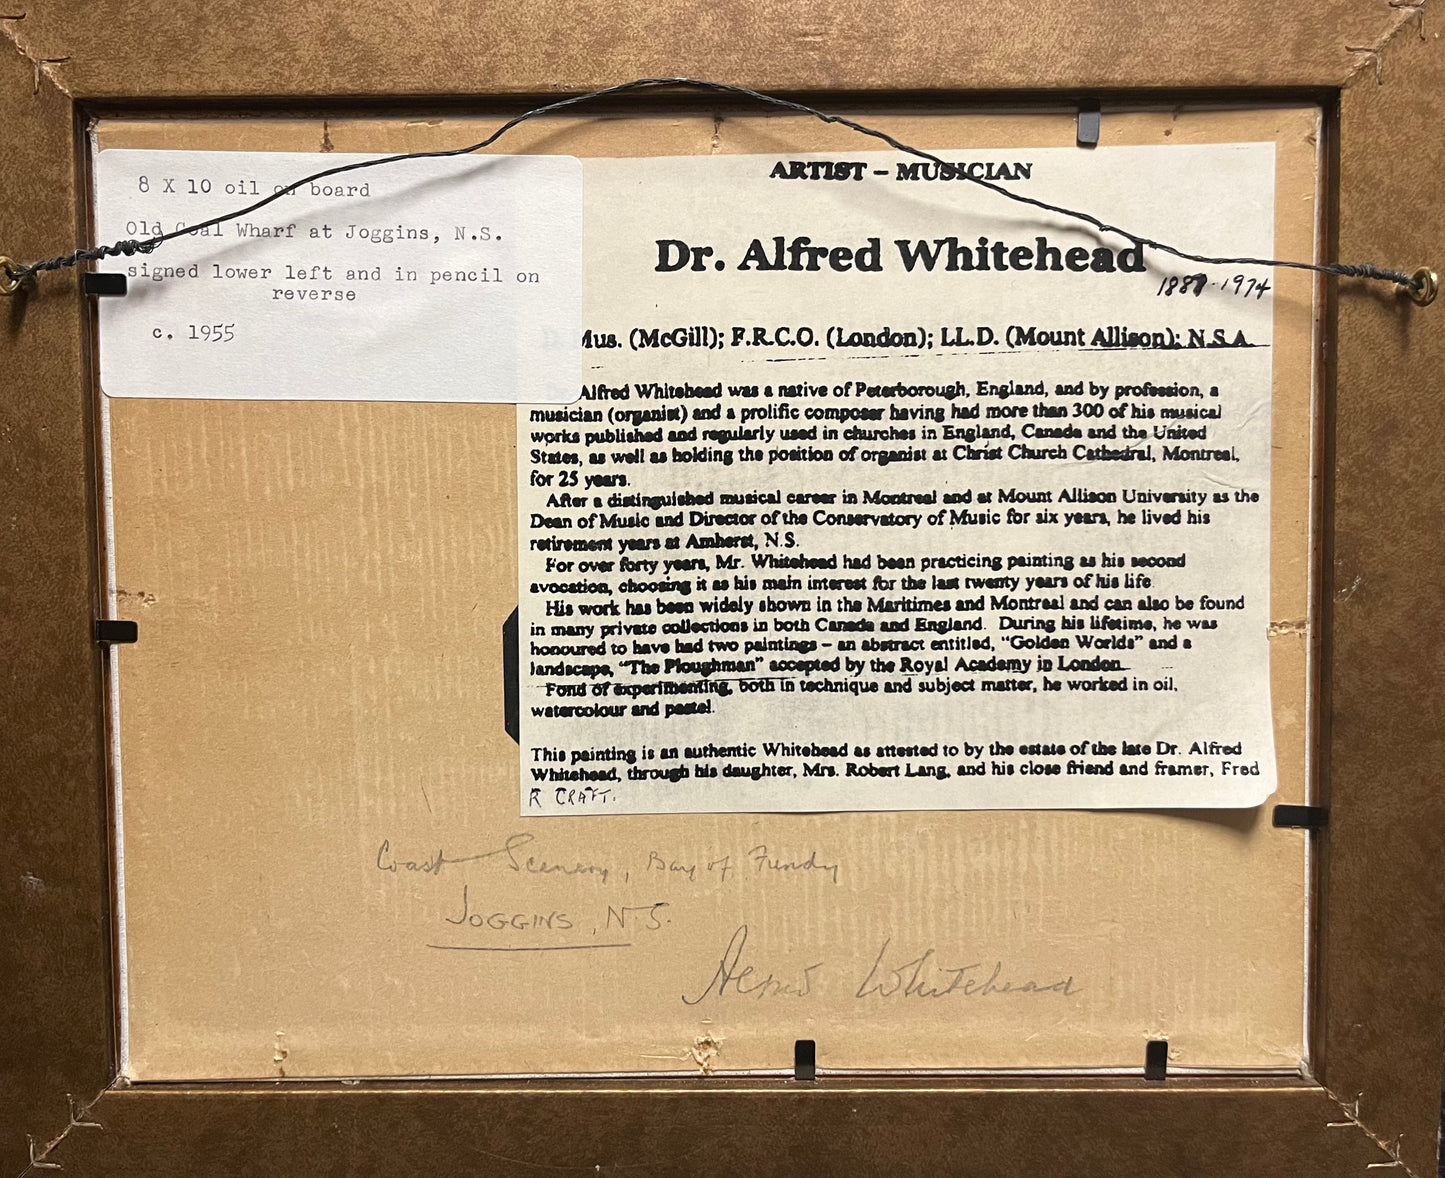 8 X 10 oil on board
Old Coal Wharf at Joggins, N.S.
signed lower left and in pencil on
reverse
c. 1955
ARTIST – MUSICIAN
Dr. Alfred Whitehead
1887-1974
Mus. (McGill); F.R.C.O. (London); LL.D. (Mount Allison); N.S.A.
Alfred Whitehead was a native of Peterborough, England, and by profession, a
musician (organist) and a prolific composer having had more than 300 of his musical
works published and regularly used in churches in England, Canada and the United
States, as well as holding the position of organist at Christ Church Cathedral, Montreal,
for 25 years.
After a distinguished musical career in Montreal and at Mount Allison University as the
Dean of Music and Director of the Conservatory of Music for six years, he lived his
retirement years at Amherst, N.S.
For over forty years, Mr. Whitehead had been practicing painting as his second
avocation, choosing it as his main interest for the last twenty years of his life.
His work has been widely shown in the Maritimes and Montreal and can also be found
in many private collections in both Canada and England. During his lifetime, he was
honoured to have had two paintings – an abstract entitled, "Golden Worlds" and a
landscape, "The Ploughman" accepted by the Royal Academy in London.
Fond of experimenting, both in technique and subject matter, he worked in oil,
watercolour and pastel.
This painting is an authentic Whitehead as attested to by the estate of the late Dr. Alfred
Whitehead, through his daughter, Mrs. Robert Lang, and his close friend and framer, Fred
R CRAFT.
Coast Scenery, Bay of Fundy
JOGGINS, N.S.
Alfred Whitehead